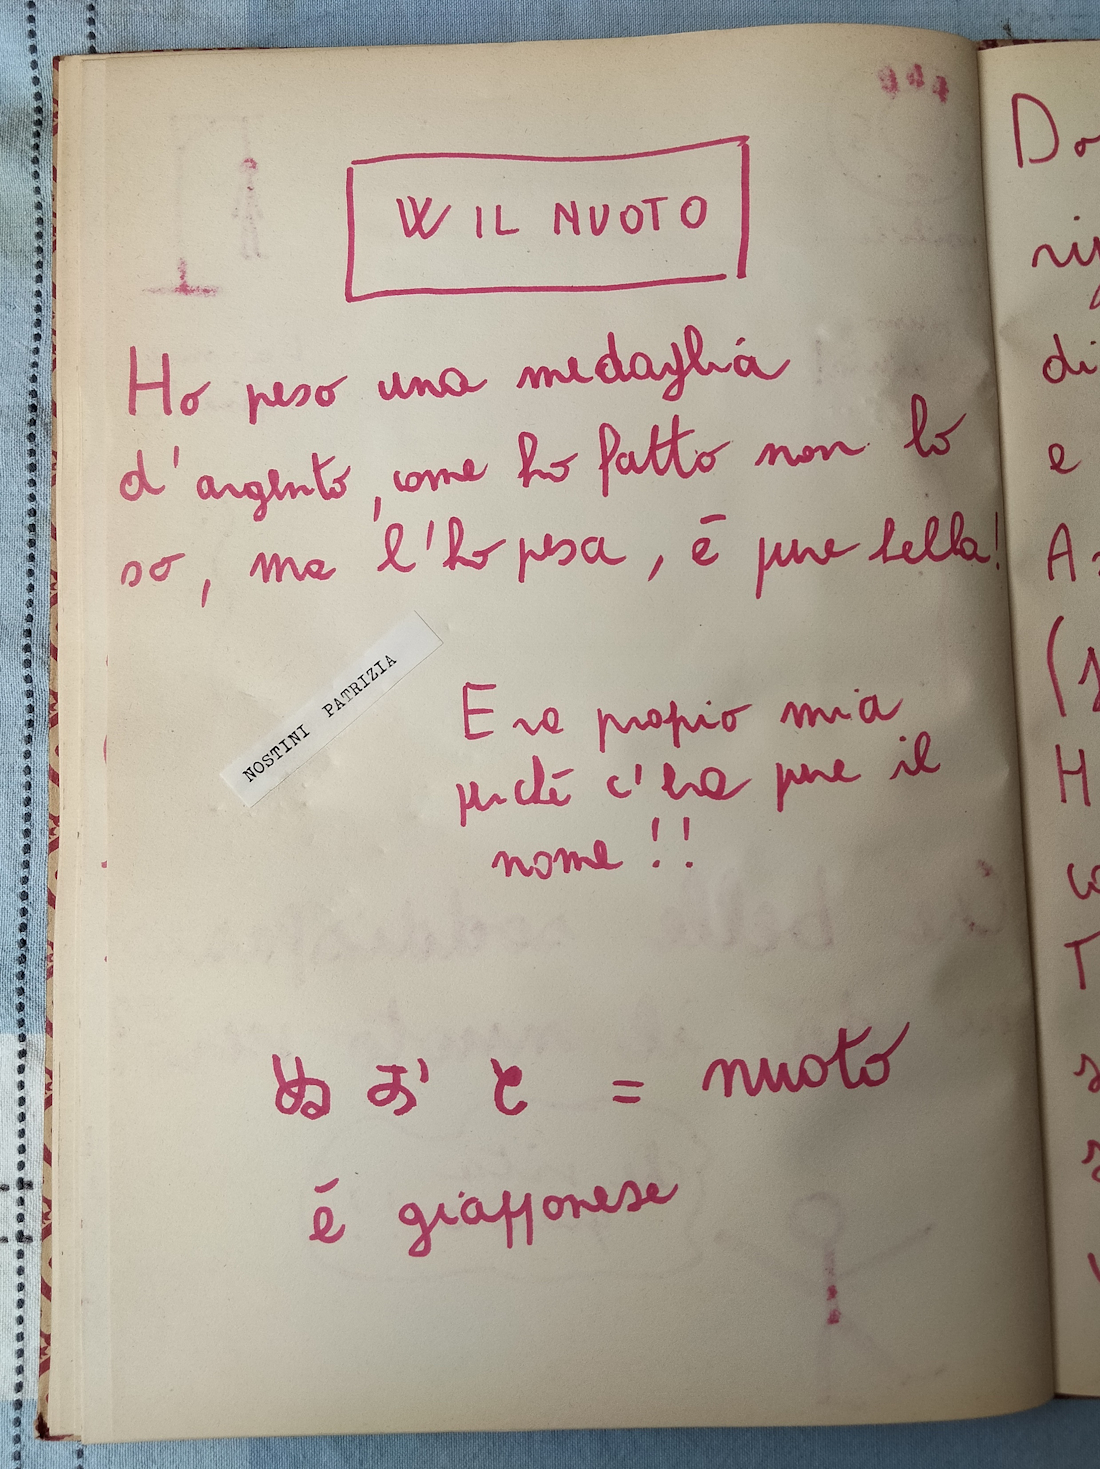 W IL NUOTO
Ho peso una medaglia
d'argento, come ho fatto non lo
so, ma l'ho pesa, è pure bella!
NOSTINI PATRIZIA
Era propio mia
perché c'era pure il
nome!!
ぬ お と = nuoto
è giapponese
Do
di
e
A
H
co